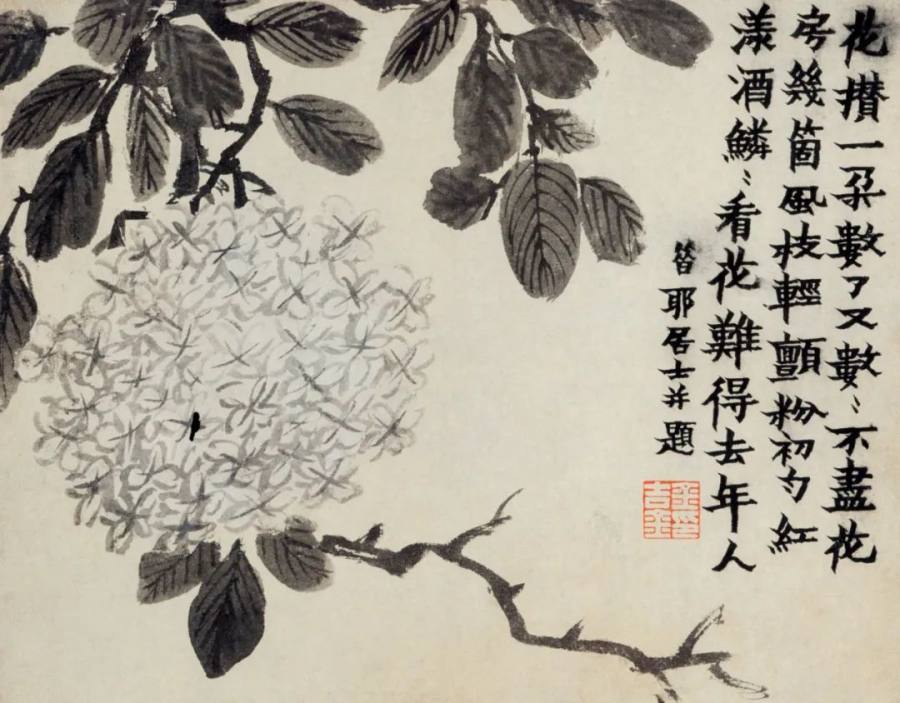 花攢一朶數了又數〻不盡花
房幾箇風枝輕顫粉初勻紅
漾酒鱗〻看花難得去年人
昔耶居士并題
金吉金印